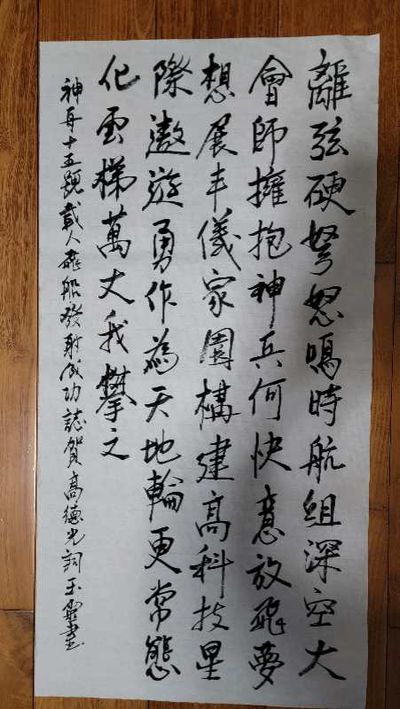 離弦硬弩怒鳴時航組深空大
會師擁抱神兵何快意放飛夢
想展丰儀家園構建高科技星
際遨遊勇作為天地輪更常態
化雲梯萬丈我攀之
神舟十五號載人飛船發射成功誌賀高德光詞玉書